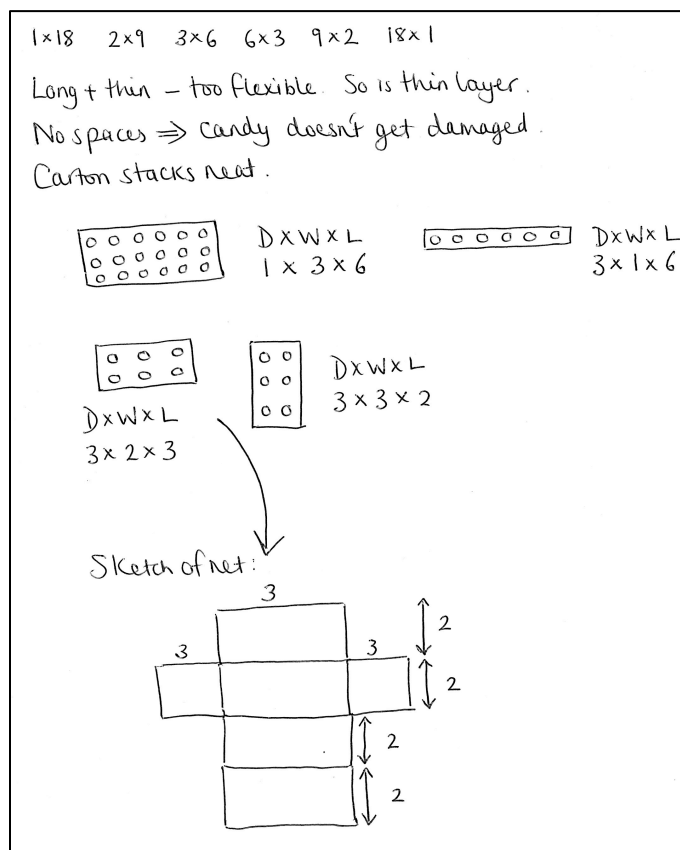 1×18 2×9 3×6 6×3 9×2 18×1
Long + thin – too flexible. So is thin layer.
No spaces ⇒ candy doesn't get damaged.
Carton stacks neat.
D×W×L
1 × 3 × 6
D×W×L
3×1×6
D×W×L
3×2×3
D×W×L
3×3×2
Sketch of net:
3
2
3
3
2
2
2